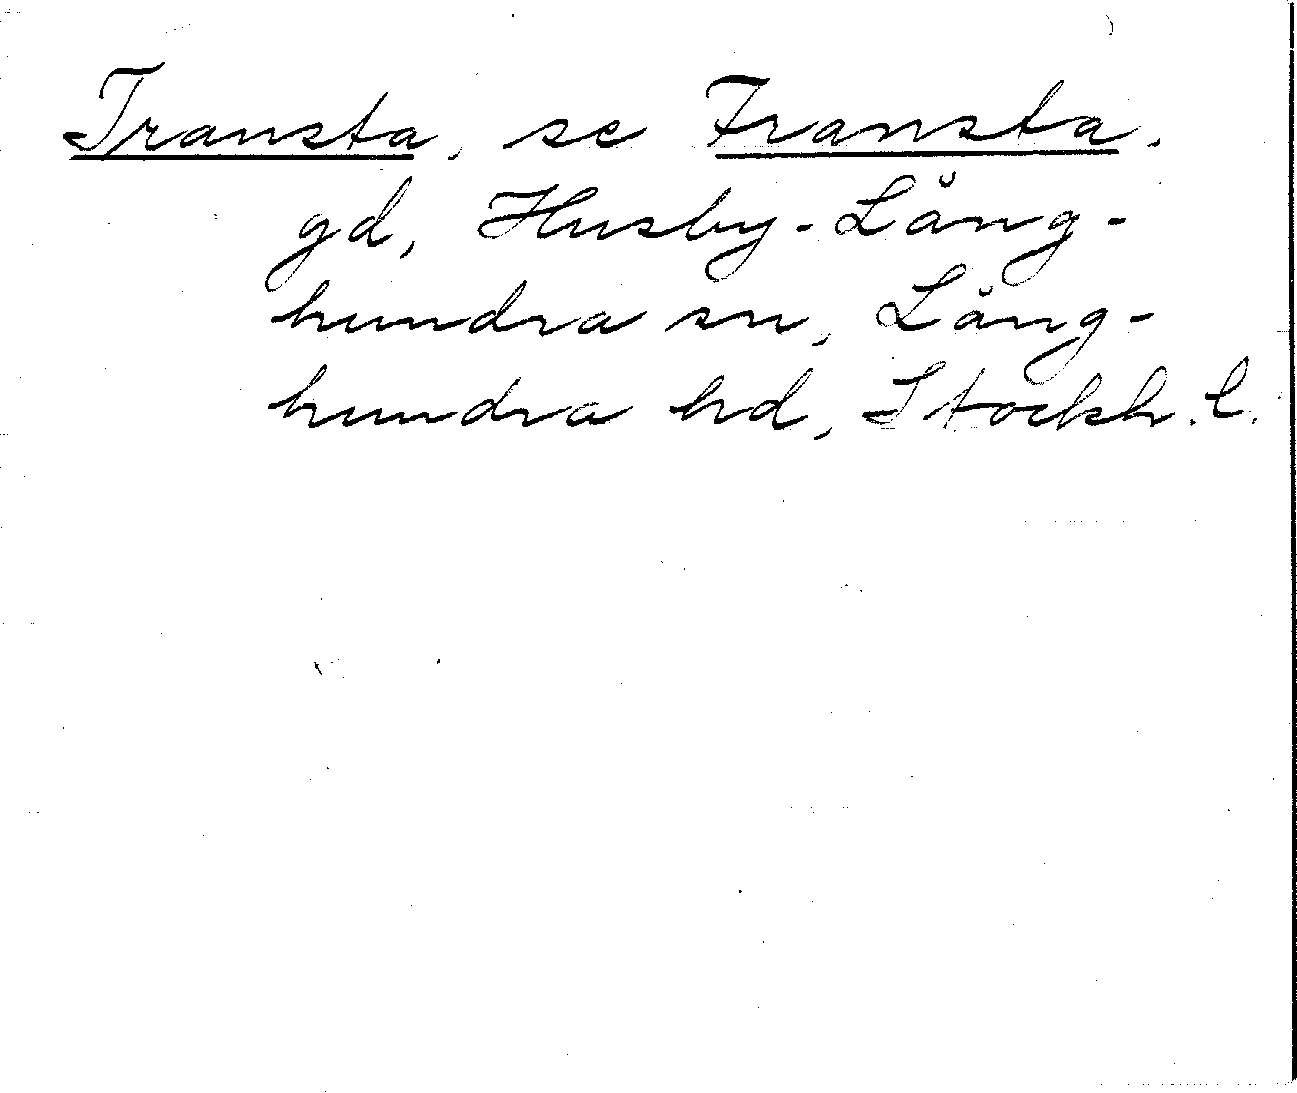 Transta, se Fransta.
gd, Husby-Lång-
hundra sn, Lång-
hundra hd, Stockh. l.